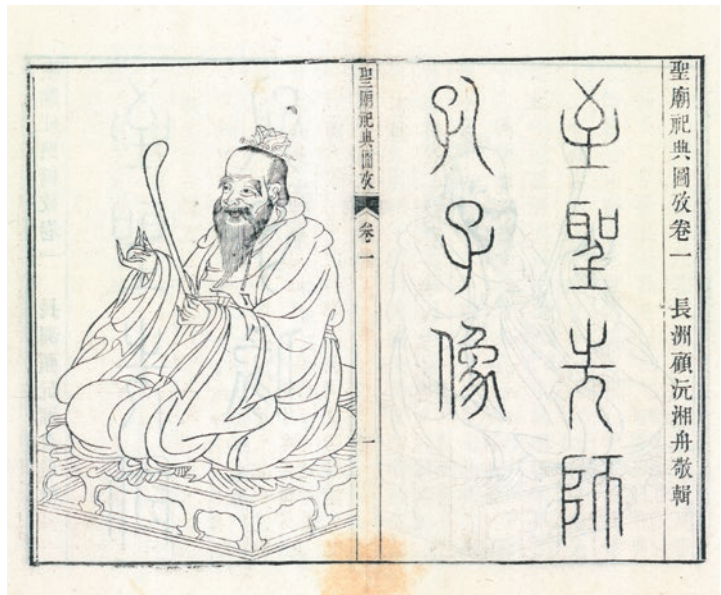 聖廟祀典圖攷卷一 長洲顧沅湘舟敬輯
至聖先師
孔子像
聖廟祀典圖攷 卷一 一